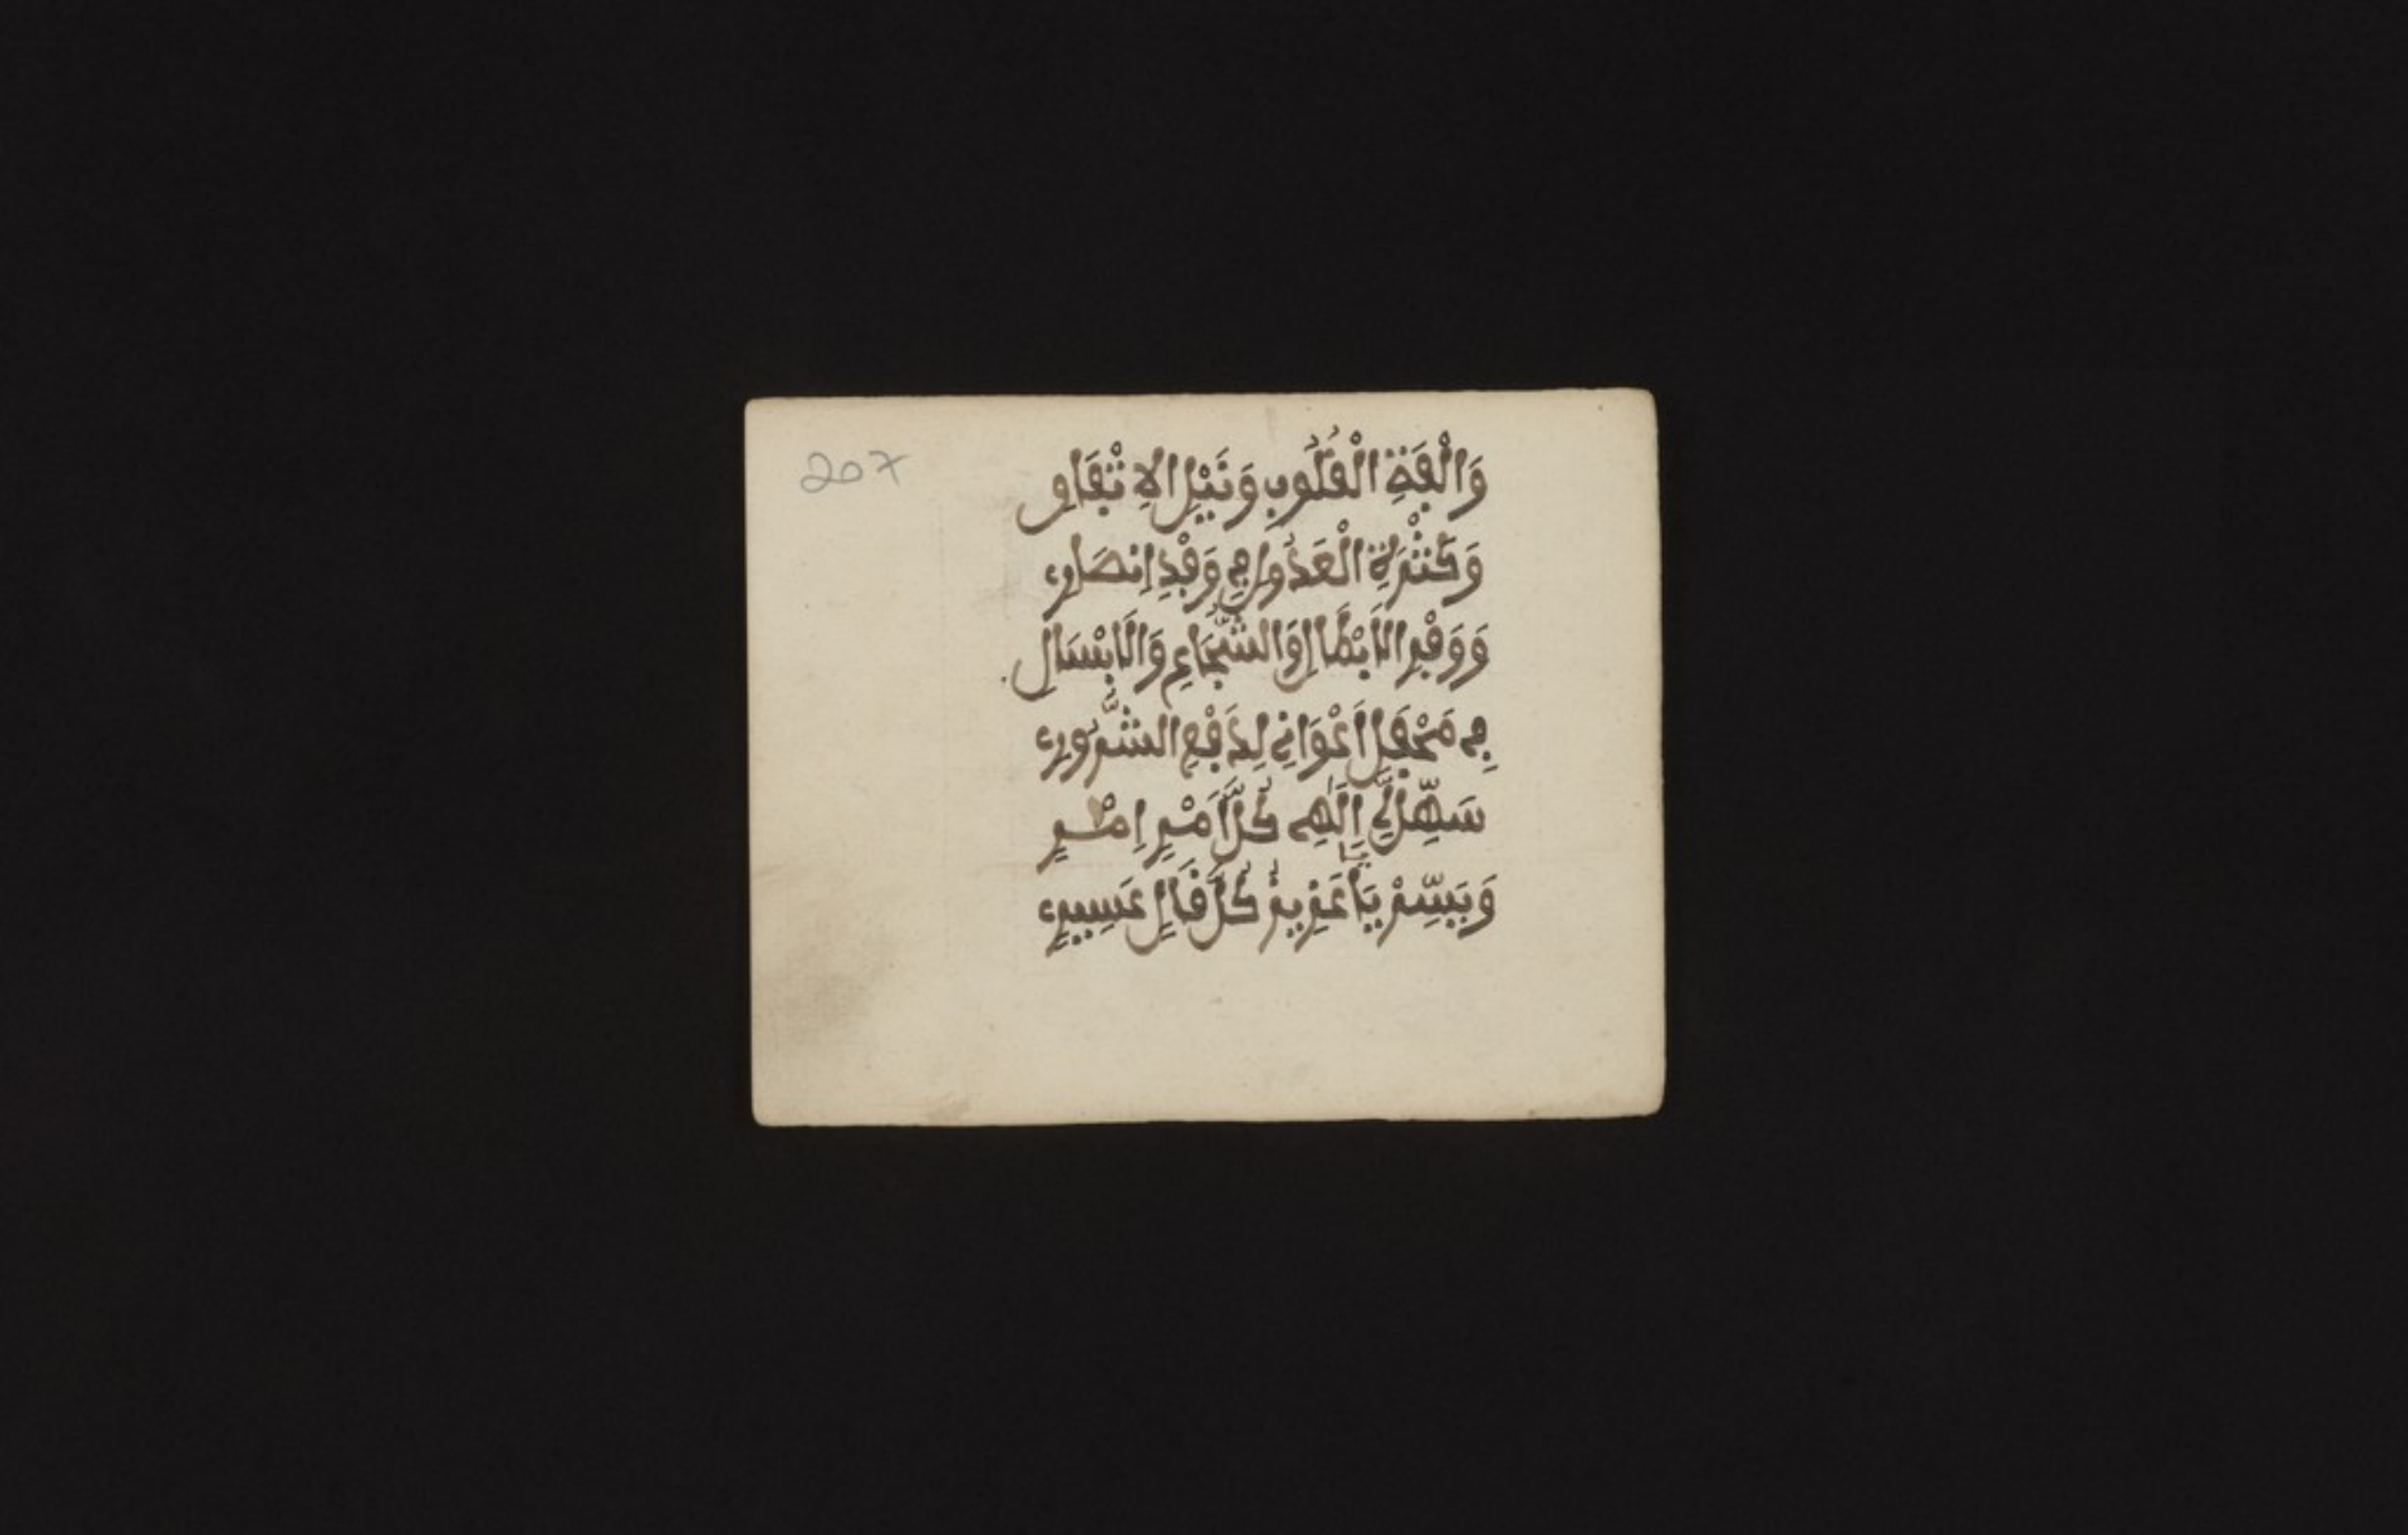 207
وَالْفَةِ الْقُلُوبِ وَنَيْلِ الِاتْفَاقِ
وَكَثْرَةِ الْعَدُوِّ لِي وَفْدِ انْصَارِي
وَوَفْرِ الَابْطَالِ وَالشُّجَاعِ وَالَابْسَالِ
فِي مَحْفَلِ اَعْوَانِي لِدَفْعِ الشُّرُورِي
سَهِّلْ لِي اِلَهِي كُلَّ اَمْرٍ اِمْرٍ
وَيَسِّرْ يَا عَزِيزُ كُلَّ قَالٍ عَسِيرِي